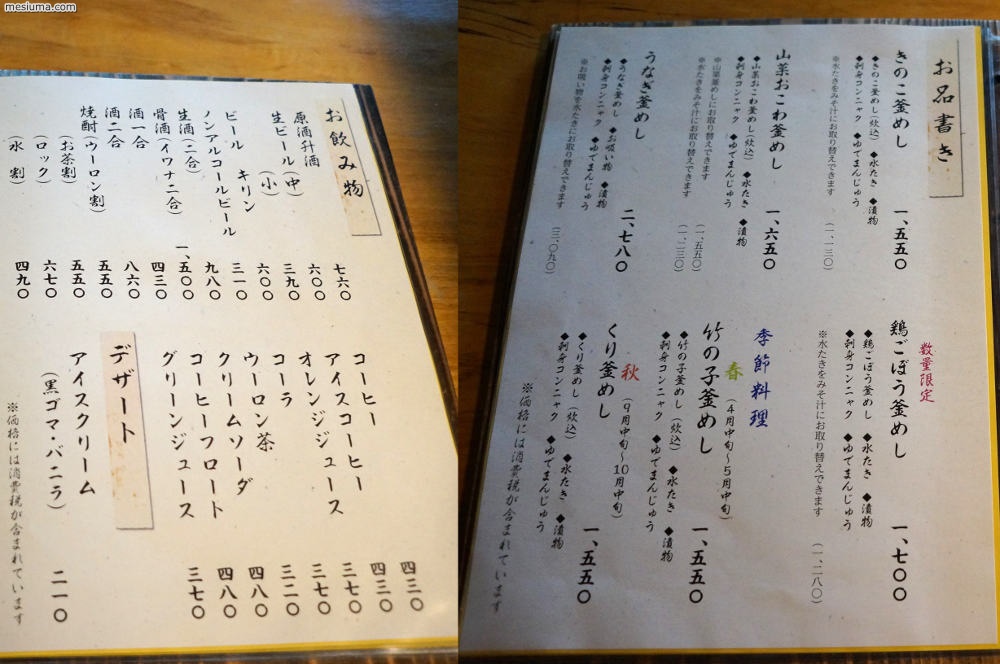 mesiuma.com
お飲み物
原酒升酒 七六〇
生ビール (中) 六〇〇
(小) 三九〇
ビール キリン 六〇〇
ノンアルコールビール 三一〇
生酒(二合) 九八〇
骨酒(イワナ二合) 一、五〇〇
酒一合 四三〇
酒二合 八六〇
焼酎 ウーロン割 五五〇
(お茶割) 五五〇
(ロック) 六七〇
(水 割) 四九〇
コーヒー 四三〇
アイスコーヒー 四三〇
オレンジジュース 三七〇
コーラ 三七〇
ウーロン茶 三二〇
クリームソーダ 四八〇
コーヒーフロート 四八〇
グリーンジュース 三七〇
デザート
アイスクリーム
(黒ゴマ・バニラ) 二一〇
※価格には消費税が含まれています
お品書き
きのこ釜めし 一、五五〇
◆きのこ釜めし(炊込) ◆水たき ◆漬物
◆刺身コンニャク ◆ゆでまんじゅう
※水たきをみそ汁にお取り替えできます (一、一三〇)
山菜おこわ釜めし 一、六五〇
◆山菜おこわ釜めし(炊込) ◆水たき ◆漬物
◆刺身コンニャク ◆ゆでまんじゅう
※山菜釜めしにお取り替えできます (一、五五〇)
※水たきをみそ汁にお取り替えできます (一、二三〇)
うなぎ釜めし 二、七八〇
◆うなぎ釜めし ◆お吸い物 ◆漬物
◆刺身コンニャク ◆ゆでまんじゅう
※お吸い物を水たきにお取り替えできます (三、〇九〇)
数量限定
鶏ごぼう釜めし 一、七〇〇
◆鶏ごぼう釜めし ◆水たき ◆漬物
◆刺身コンニャク ◆ゆでまんじゅう
※水たきをみそ汁にお取り替えできます (一、二八〇)
季節料理
春 (4月中旬〜5月中旬)
竹の子釜めし 一、五五〇
◆竹の子釜めし (炊込) ◆水たき ◆漬物
◆刺身コンニャク ◆ゆでまんじゅう
秋 (9月中旬〜10月中旬)
くり釜めし 一、五五〇
◆くり釜めし (炊込) ◆水たき ◆漬物
◆刺身コンニャク ◆ゆでまんじゅう
※価格には消費税が含まれています